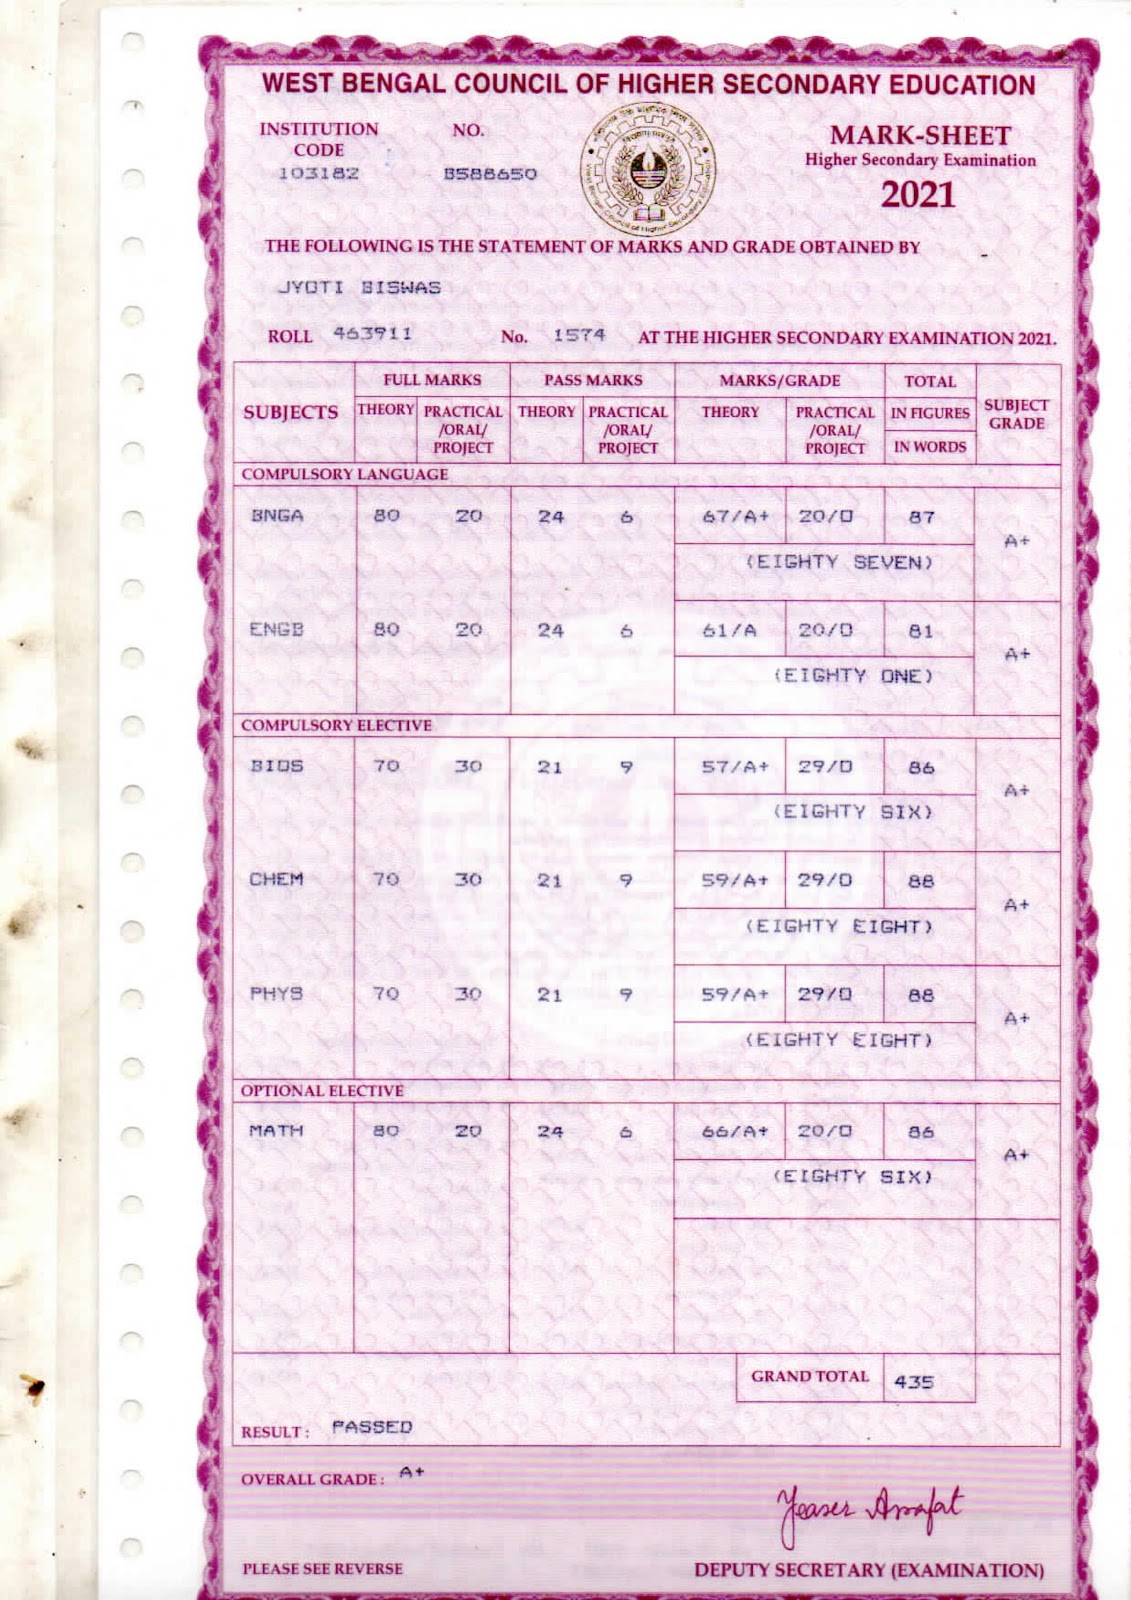 WEST BENGAL COUNCIL OF HIGHER SECONDARY EDUCATION
INSTITUTION CODE NO.
103182 B588650
MARK-SHEET
Higher Secondary Examination
2021
THE FOLLOWING IS THE STATEMENT OF MARKS AND GRADE OBTAINED BY
JYOTI BISWAS
ROLL 463911 No. 1574 AT THE HIGHER SECONDARY EXAMINATION 2021.
SUBJECTS FULL MARKS PASS MARKS MARKS/GRADE TOTAL SUBJECT GRADE
THEORY PRACTICAL /ORAL/ PROJECT THEORY PRACTICAL /ORAL/ PROJECT THEORY PRACTICAL /ORAL/ PROJECT IN FIGURES
IN WORDS
COMPULSORY LANGUAGE
BNGA 80 20 24 6 67/A+ 20/O 87 A+
(EIGHTY SEVEN)
ENGB 80 20 24 6 61/A 20/O 81 A+
(EIGHTY ONE)
COMPULSORY ELECTIVE
BIOS 70 30 21 9 57/A+ 29/O 86 A+
(EIGHTY SIX)
CHEM 70 30 21 9 59/A+ 29/O 88 A+
(EIGHTY EIGHT)
PHYS 70 30 21 9 59/A+ 29/O 88 A+
(EIGHTY EIGHT)
OPTIONAL ELECTIVE
MATH 80 20 24 6 66/A+ 20/O 86 A+
(EIGHTY SIX)
GRAND TOTAL 435
RESULT : PASSED
OVERALL GRADE : A+
Yeaser Arrafat
PLEASE SEE REVERSE DEPUTY SECRETARY (EXAMINATION)